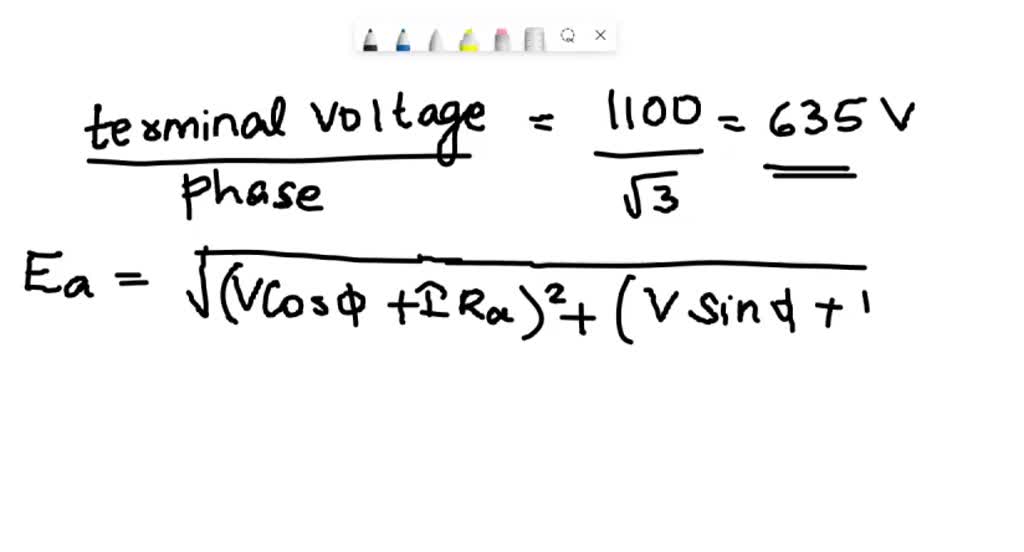 terminal voltage / phase = 1100 / √3 = 635 V
Ea = √(VCosφ + IRa)² + (V Sinφ + I